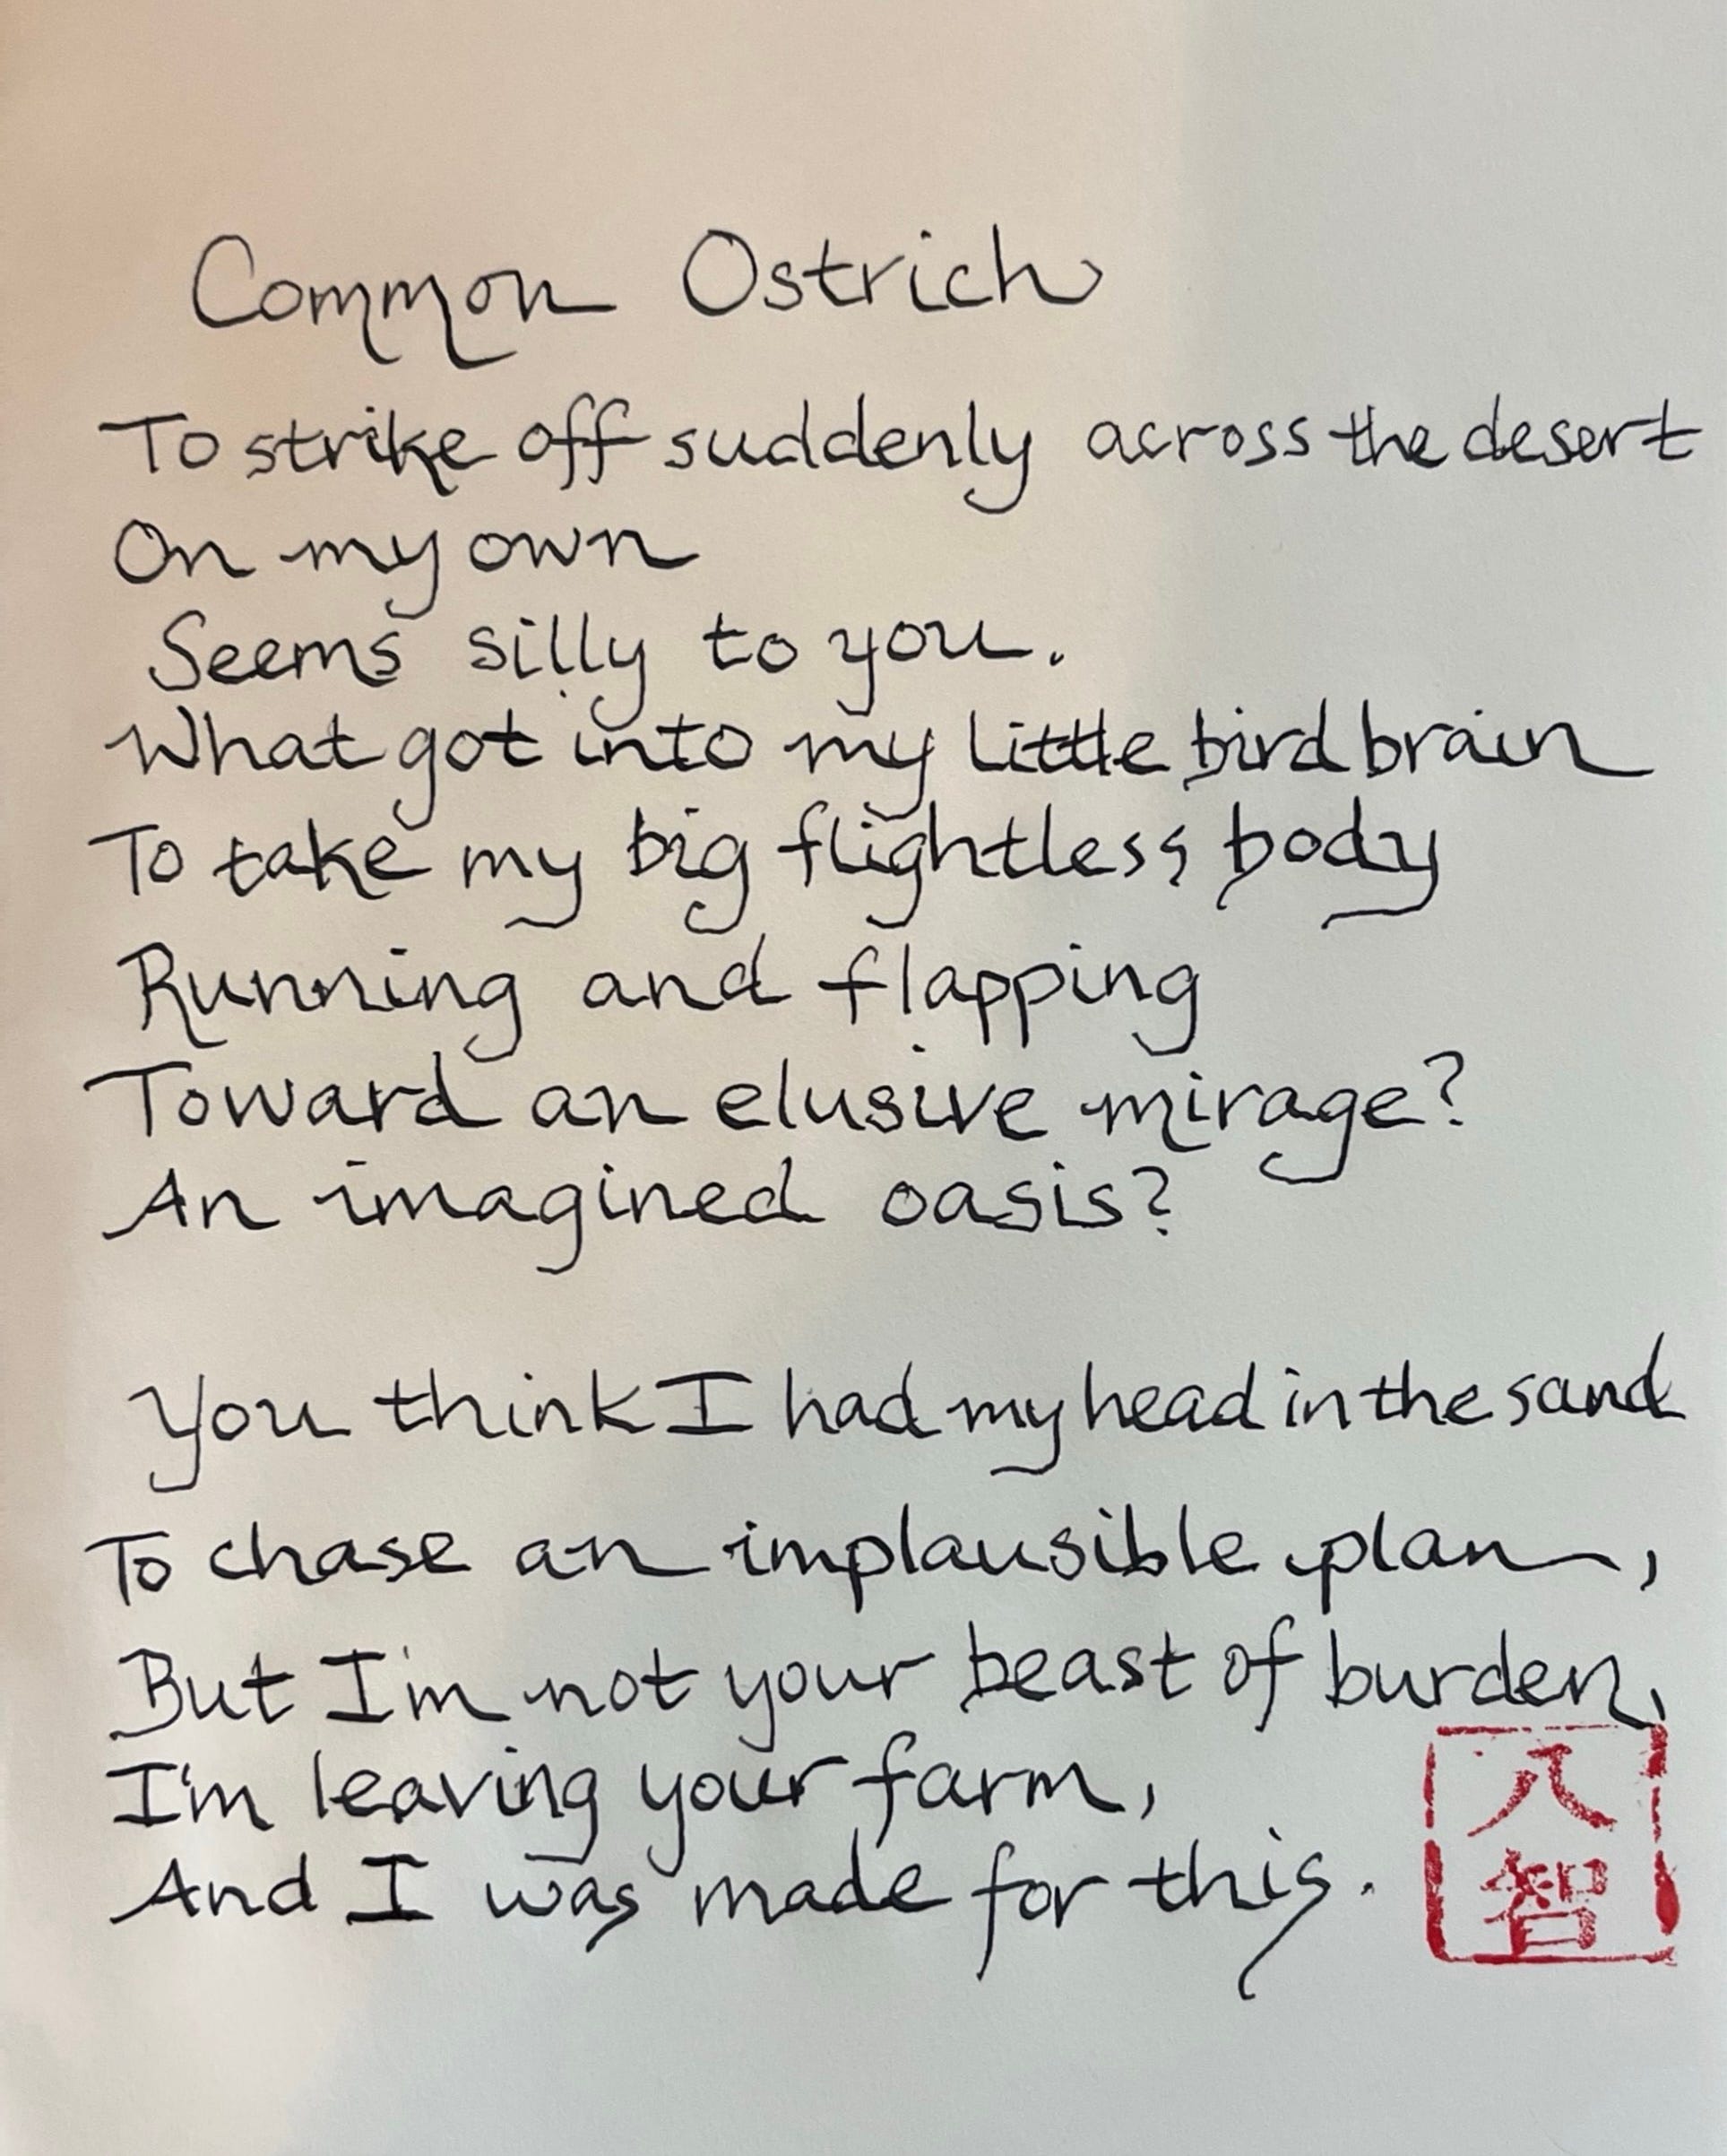 Common Ostrich
To strike off suddenly across the desert
On my own
Seems silly to you.
What got into my little bird brain
To take my big flightless body
Running and flapping
Toward an elusive mirage?
An imagined oasis?
You think I had my head in the sand
To chase an implausible plan,
But I'm not your beast of burden,
I'm leaving your farm,
And I was made for this.
八
智